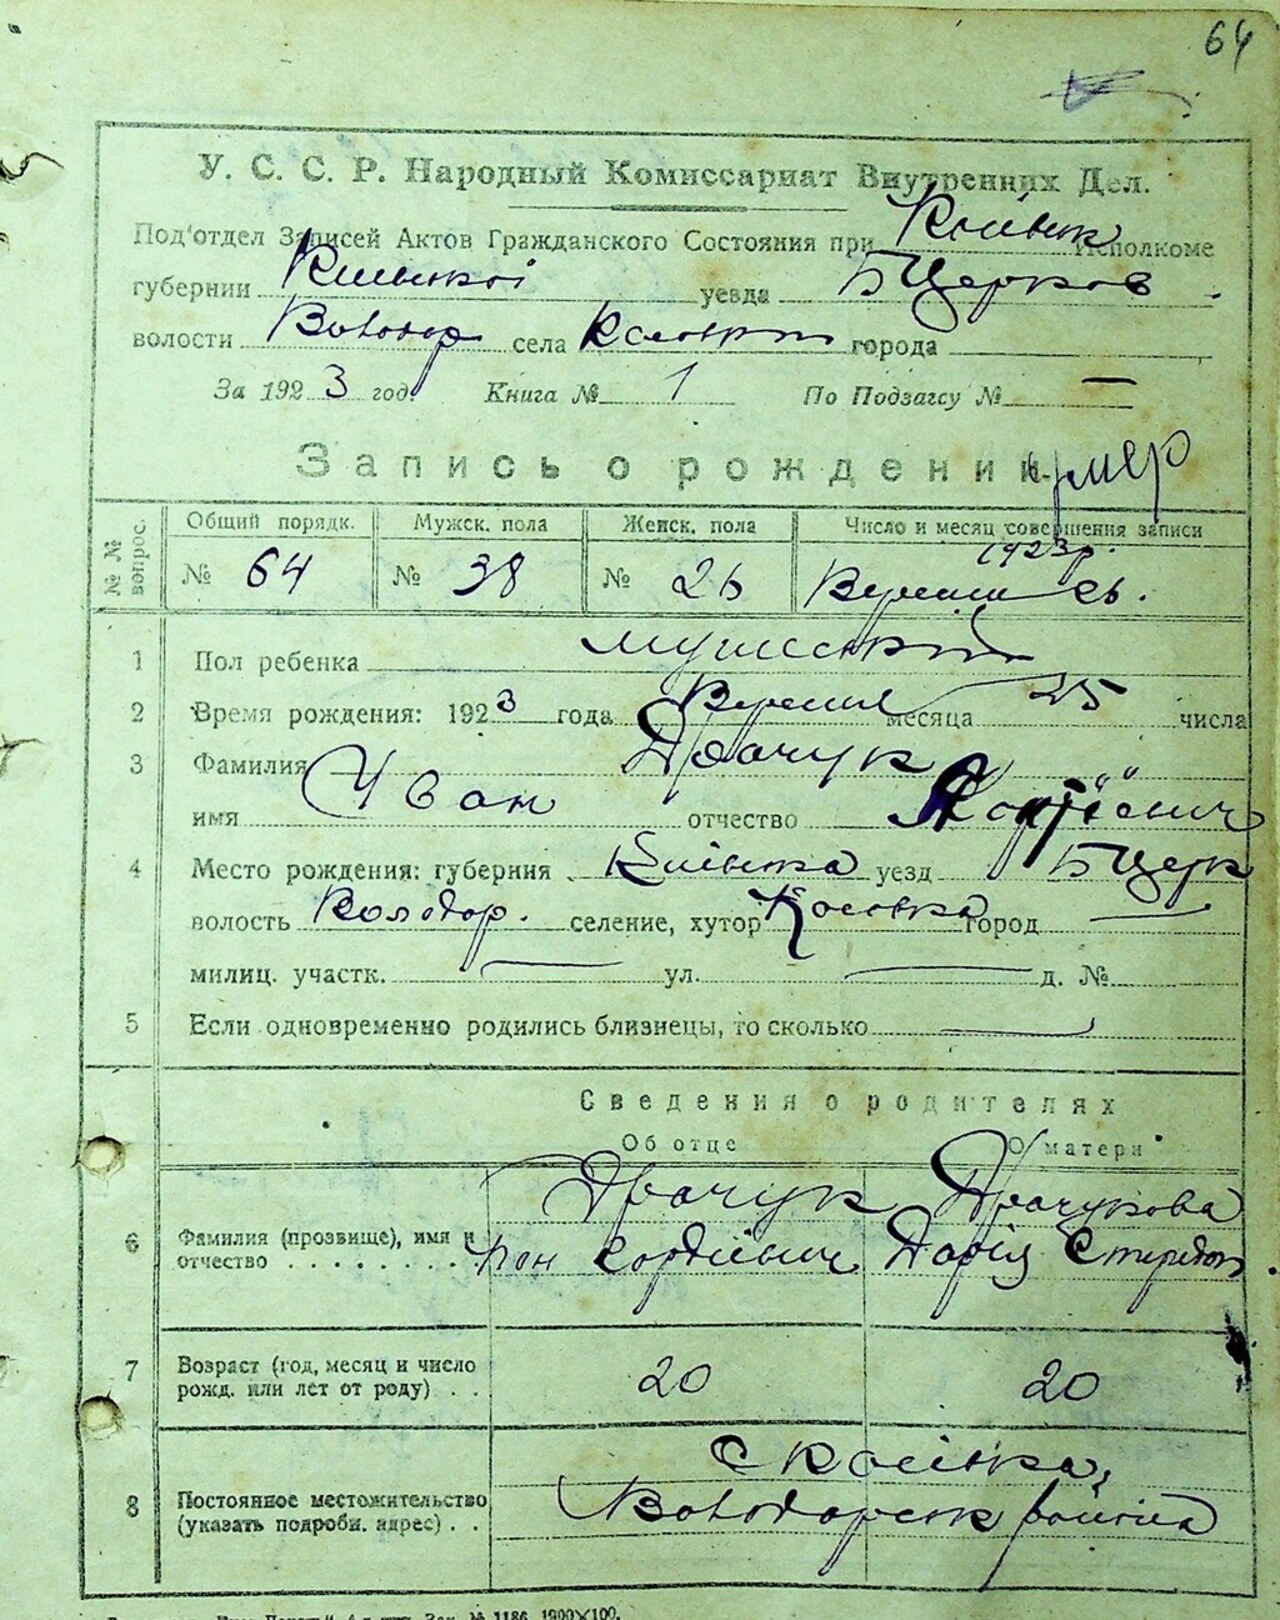 64
У. С. С. Р. Народный Комиссариат Внутренних Дел.
Под'отдел Записей Актов Гражданского Состояния при Исполкоме
губернии Київської уезда БЦерков.
волости Володор села города
За 1923 год. Книга № 1 По Подзагсу № —
Запись о рождении. умер
№ № вопрос. Общий порядк. Мужск. пола Женск. пола Число и месяц совершения записи
1923р.
№ 64 № 38 № 26 Вересня 26.
1 Пол ребенка мужеский
2 Время рождения: 1923 года Вересня месяца 25 числа
3 Фамилия Драчук
имя Иван отчество
4 Место рождения: губерния Київська уезд БЦерк
волость Володор. селение, хутор Косовка город —
милиц. участк. — ул. — д. №
5 Если одновременно родились близнецы, то сколько —
Сведения о родителях
Об отце О матери
Драчук Драчукова
6 Фамилия (прозвище), имя и отчество Кордієвич Дарія Спиридон.
7 Возраст (год, месяц и число рожд. или лет от роду) . . 20 20
8 Постоянное местожительство (указать подробн. адрес) . . С Косівка,
Володарськ района
Зак. № 1186. 1900×100.